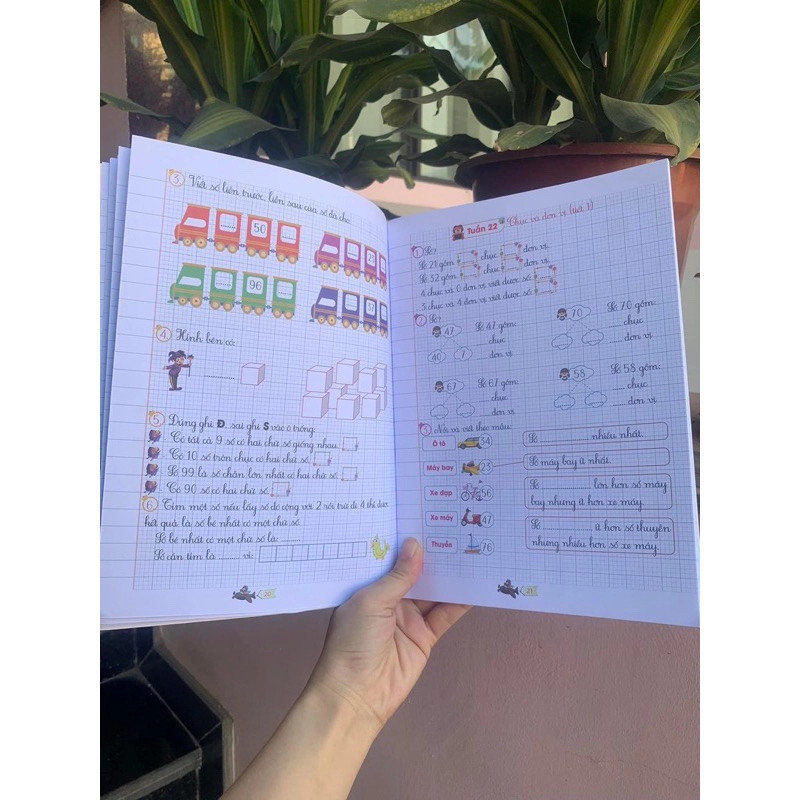 3 Viết số liền trước, liền sau của số đã cho:
50
23
96
57
4 Hình bên có:
5 Đúng ghi Đ, sai ghi S vào ô trống:
Có tất cả 9 số có hai chữ số giống nhau.
Có 10 số tròn chục có hai chữ số.
Số 99 là số chẵn lớn nhất có hai chữ số.
Có 90 số có hai chữ số.
6 Tìm một số nếu lấy số đó cộng với 2 rồi trừ đi 4 thì được
kết quả là số bé nhất có một chữ số.
Số bé nhất có một chữ số là:
Số cần tìm là ....... vì:
20
Tuần 22 Chục và đơn vị (tiết 1)
1 Số?
Số 21 gồm chục đơn vị.
Số 52 gồm chục đơn vị.
4 chục và 0 đơn vị viết được số:
5 chục và 4 đơn vị viết được số:
2 Số?
47 Số 47 gồm:
..... chục
40 7 ..... đơn vị
70 Số 70 gồm:
..... chục
..... đơn vị
67 Số 67 gồm:
..... chục
..... đơn vị
58 Số 58 gồm:
..... chục
..... đơn vị
3 Nối và viết theo mẫu:
Ô tô 34
Máy bay 23
Xe đạp 56
Xe máy 47
Thuyền 76
Số .......... nhiều nhất.
Số máy bay ít nhất.
Số .......... lớn hơn số máy
bay nhưng ít hơn xe máy.
Số .......... ít hơn số thuyền
nhưng nhiều hơn số xe máy.
21